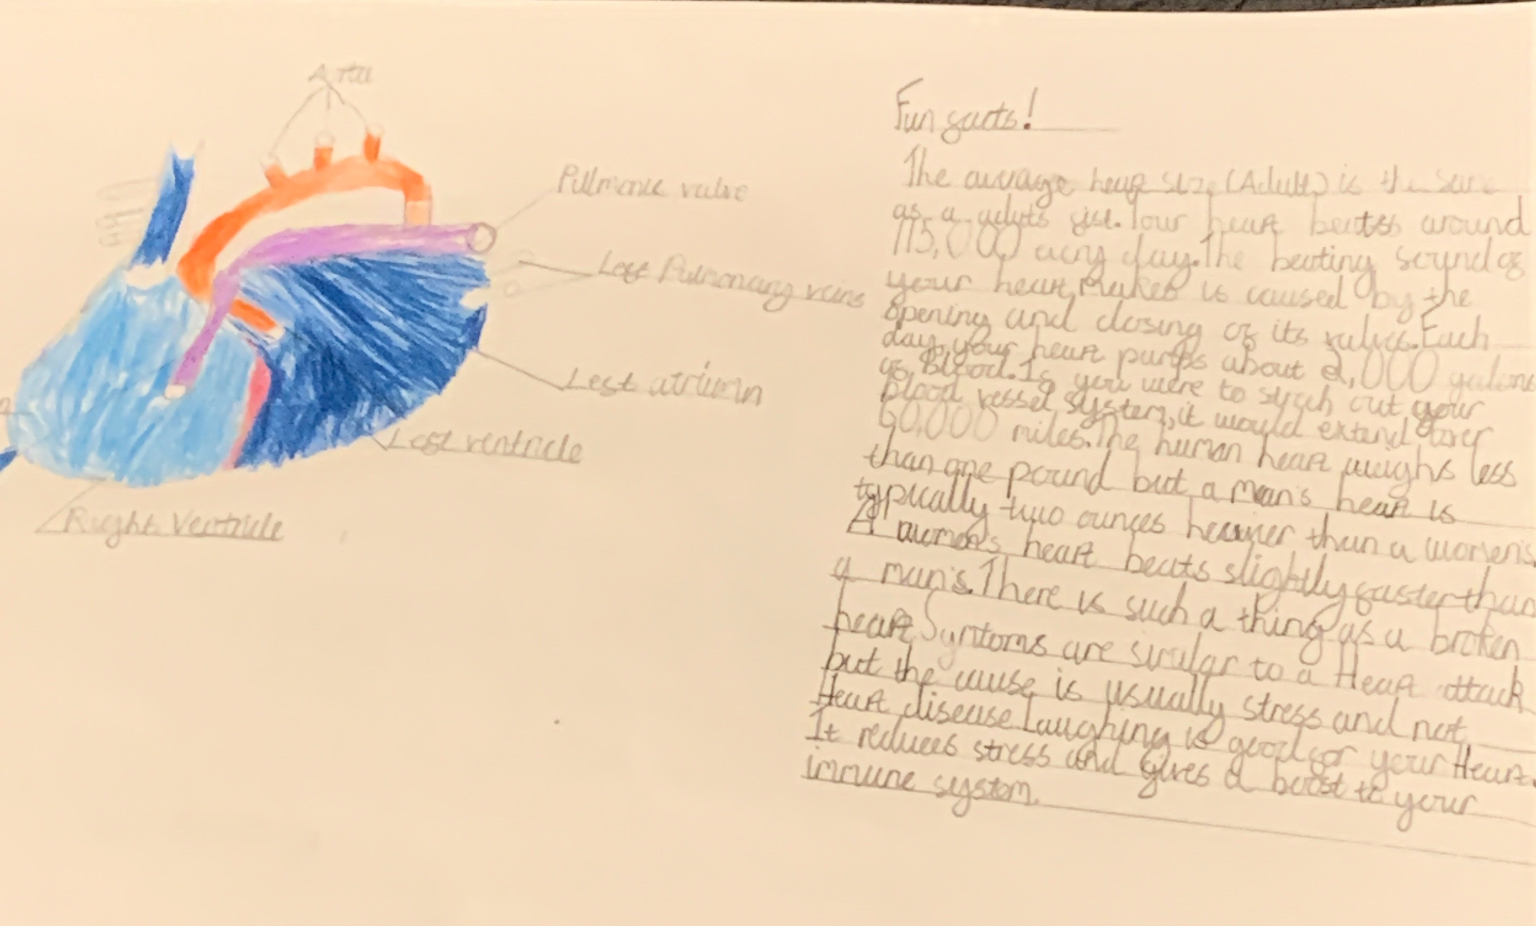 Aorta
Pulmonic valve
Left Pulmonary veins
Left atrium
Left ventricle
Right Ventricle
Fun facts!
The avrage heart size (Adult) is the same
as a adults fist. Your heart beatss around
115,000 every day. The beating sound of
your heart makes is caused by the
opening and closing of its valves. Each
day, your heart pumps about 2,000 galons
of Blood. If you were to strech out your
blood vessel system, it would extend over
60,000 miles. The human heart weighs less
than one pound but a man's heart is
typically two ounces heavier than a women's.
A women's heart beats slightly faster than
a man's. There is such a thing as a broken
heart. Symtoms are similar to a Heart attack
but the cause is usually stress and not
Heart disease. Laughing is good for your Heart.
It reduces stress and gives a boost to your
immune system.